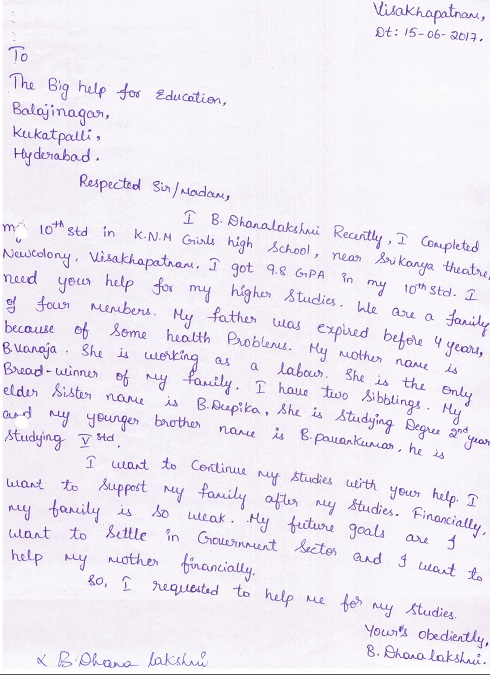 Visakhapatnam,
Dt: 15-06-2017.
To
The Big help for Education,
Balajinagar,
Kukatpalli,
Hyderabad.
Respected Sir/Madam,
I B. Dhanalakshmi Recently, I Completed
my 10th Std in K.N.M Girls high School, near Srikanya theatre,
Newcolony, Visakhapatnam. I got 9.8 GPA in my 10th Std. I
need your help for my higher Studies. We are a family
of four members. My father was expired before 4 years,
because of Some health Problems. My mother name is
B.Vanaja. She is working as a labour. She is the only
Bread-winner of my family. I have two Sibblings. My
elder Sister name is B.Deepika, She is Studying Degree 2nd year
and my younger brother name is B.pavankumar, he is
Studying V Std.
I want to Continue my Studies with your help. I
want to Support my family after my Studies. Financially,
my family is so weak. My future goals are I
want to Settle in Government Sector and I want to
help my mother financially.
So, I requested to help me for my Studies.
Your's obediently,
B. Dhana lakshmi.
B. Dhana lakshmi